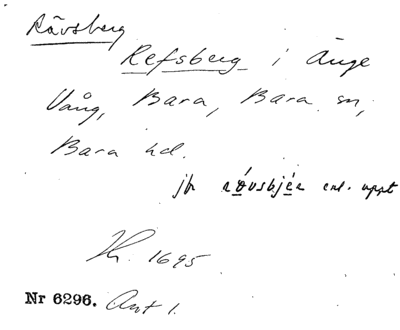 Rävsberg
Refsberg i Änge
Vång, Bara, Bara sn,
Bara hd.
jfr rövsbjér enl. uppt
Kr. 1695
Nr 6296. Avt 1.